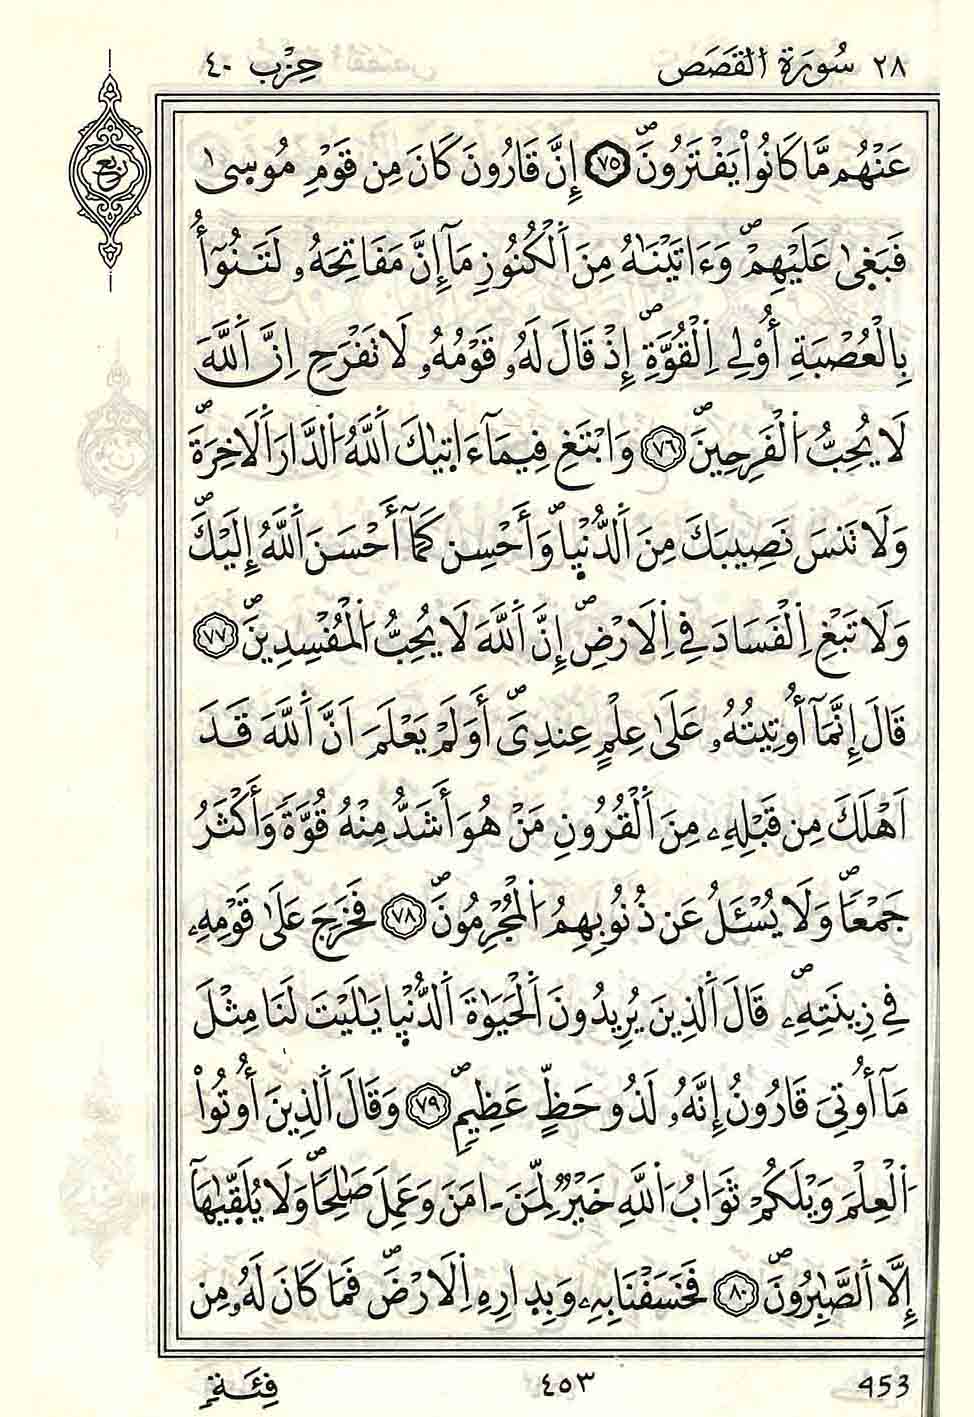 ٢٨ سُورَةُ الْقَصَصِ حِزْب ٤٠
ربع
عَنْهُم مَّا كَانُوا۟ يَفْتَرُونَۖ ٧٥ إِنَّ قَارُونَ كَانَ مِن قَوْمِ مُوسىٰ
فَبَغىٰ عَلَيْهِمْۖ وَءَاتَيْنَٰهُ مِنَ اَ۬لْكُنُوزِ مَآ إِنَّ مَفَاتِحَهُۥ لَتَنُوٓأُ
بِالْعُصْبَةِ أُوْلِے اِ۬لْقُوَّةِۖ إِذْ قَالَ لَهُۥ قَوْمُهُۥ لَا تَفْرَحِ اِنَّ اَ۬للَّهَ
لَا يُحِبُّ اُ۬لْفَرِحِينَۖ ٧٦ وَابْتَغِ فِيمَآ ءَاتيٰكَ اَ۬للَّهُ اُ۬لدَّارَ اَ۬لَاخِرَةَۖ
وَلَا تَنسَ نَصِيبَكَ مِنَ اَ۬لدُّنْيٜاۖ وَأَحْسِن كَمَآ أَحْسَنَ اَ۬للَّهُ إِلَيْكَۖ
وَلَا تَبْغِ اِ۬لْفَسَادَ فِے اِ۬لَارْضِۖ إِنَّ اَ۬للَّهَ لَا يُحِبُّ اُ۬لْمُفْسِدِينَۖ ٧٧
قَالَ إِنَّمَآ أُوتِيتُهُۥ عَلَىٰ عِلْمٍ عِندِيٓۖ أَوَلَمْ يَعْلَمَ اَنَّ اَ۬للَّهَ قَدَ
اَهْلَكَ مِن قَبْلِهِۦ مِنَ اَ۬لْقُرُونِ مَنْ هُوَ أَشَدُّ مِنْهُ قُوَّةً وَأَكْثَرُ
جَمْعاًۖ وَلَا يُسْـَٔلُ عَن ذُنُوبِهِمُ اُ۬لْمُجْرِمُونَۖ ٧٨ فَخَرَجَ عَلَىٰ قَوْمِهِۦ
فِے زِينَتِهِۦۖ قَالَ اَ۬لذِينَ يُرِيدُونَ اَ۬لْحَيَوٰةَ اَ۬لدُّنْيٜا يَٰلَيْتَ لَنَا مِثْلَ
مَآ أُوتِيَ قَارُونُ إِنَّهُۥ لَذُو حَظٍّ عَظِيمٍۖ ٧٩ وَقَالَ اَ۬لذِينَ أُوتُوا۟
اُ۬لْعِلْمَ وَيْلَكُمْ ثَوَابُ اُ۬للَّهِ خَيْرٌ لِّمَنَ ـ امَنَ وَعَمِلَ صَٰلِحاًۖ وَلَا يُلَقّيٰهَآ
إِلَّا اَ۬لصَّٰبِرُونَۖ ٨٠ فَخَسَفْنَا بِهِۦ وَبِدٜارِهِ اِ۬لَارْضَۖ فَمَا كَانَ لَهُۥ مِن
فِئَةٍ ٤٥٣ 453